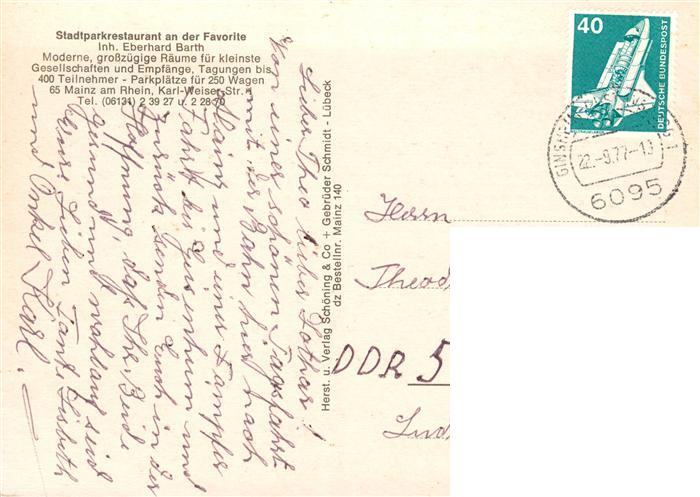 Stadtparkrestaurant an der Favorite
Inh. Eberhard Barth
Moderne, großzügige Räume für kleinste
Gesellschaften und Empfänge, Tagungen bis
400 Teilnehmer - Parkplätze für 250 Wagen
65 Mainz am Rhein, Karl-Weiser-Str. 1
Tel. (06131) 2 39 27 u. 2 28 70
Lieber Theo lieber Lothar!
Von einer schönen Tagesfahrt
mit der Bahn hier nach
Mainz und einer Dampfer
Fahrt bis
zurück senden Euch in der
Hoffnung, daß Ihr Beide
gesund und wohlauf seid
Eure lieben Tante Lisbeth
und Onkel Karl.
Herst. u. Verlag Schöning & Co + Gebrüder Schmidt - Lübeck
dz Bestellnr. Mainz 140
40
DEUTSCHE BUNDESPOST
22.-9.77-13
6095
Herrn
Theod
DDR 5